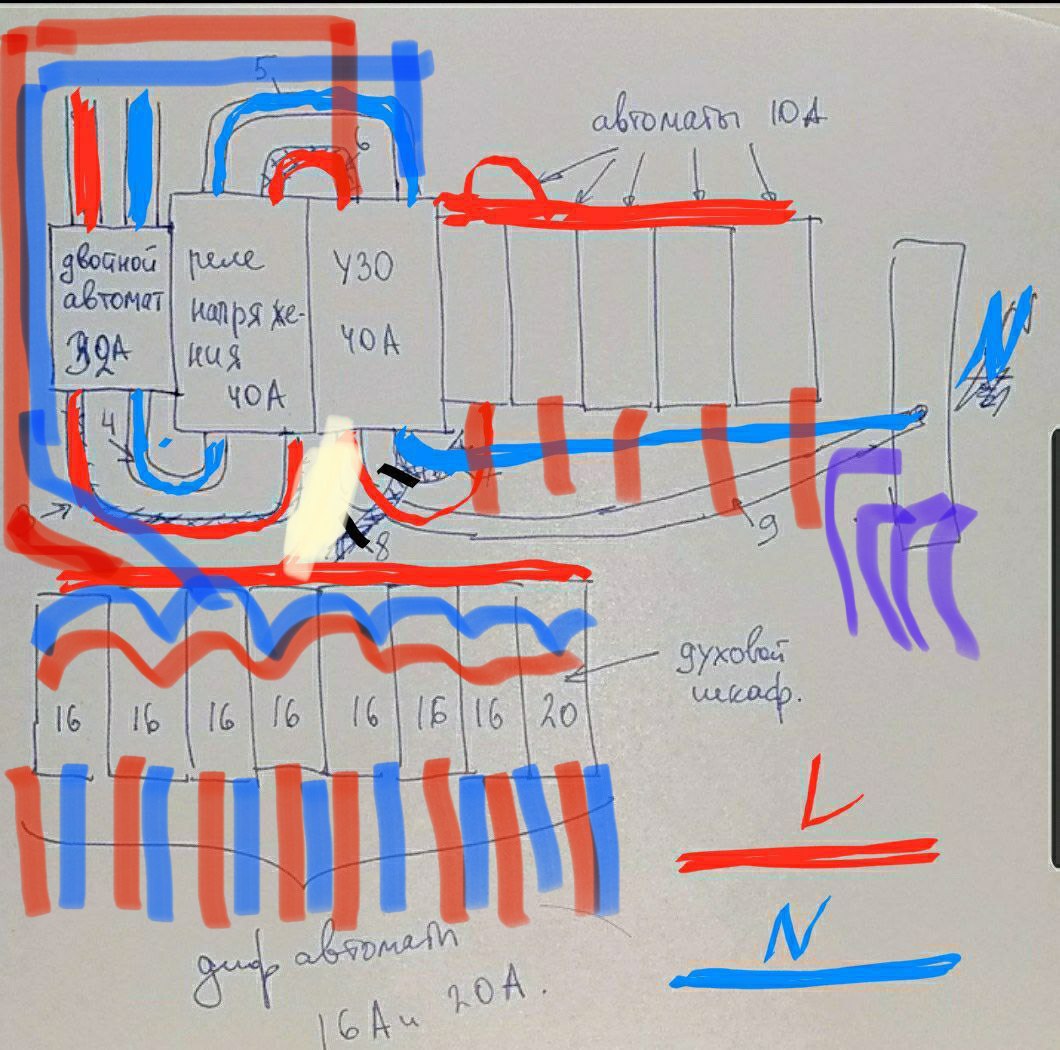 5
6
автоматы 10А
двойной
автомат
32А
реле
напряже-
ния
40А
УЗО
40А
N
4
8
9
духовой
шкаф.
16 16 16 16 16 16 16 20
L
N
диф автоматы
16А и 20А.